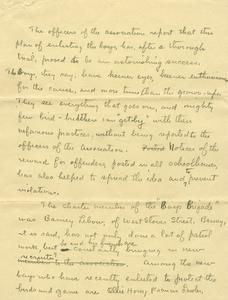 The officers of the association report that this
plan of enlisting the boys has, after a thorough
trial, proved to be an astonishing success.
The Boys, they say, have keener eyes, keener enthusiasm
for the cause, and more time than the grown-ups.
They see everything that goes on, and mighty
few bird-killers can "get by" with their
nefarious practices without being reported to the
officers of the Association. Posted Notices of the
reward for offenders posted in all schoolhouses,
has also helped to spread the idea and to prevent
violation.
The charter member of the Boys Brigade
was Barney Lebow, of West Street. Barney,
it is said, has not only done a lot of patrol
work, but is constantly bringing in new
recruits
to the association. Among the new
boys who have recently enlisted to protect the
birds and game are